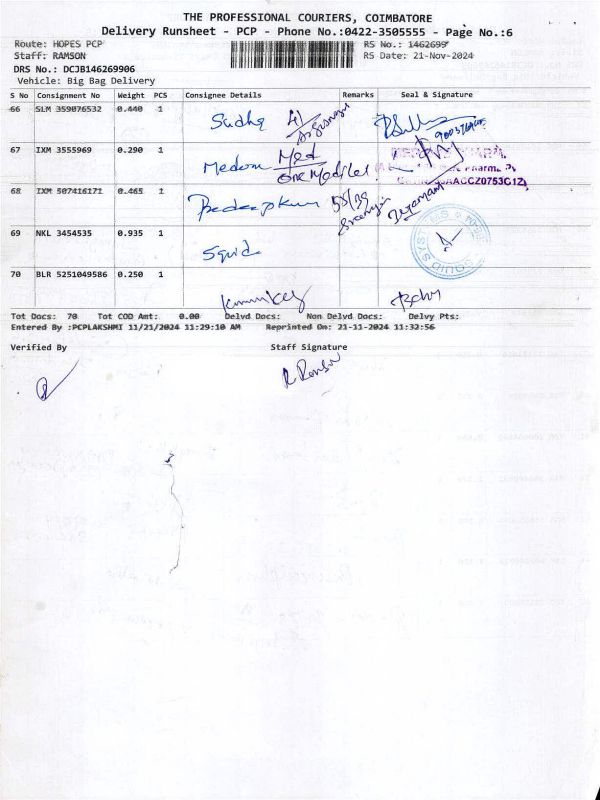 THE PROFESSIONAL COURIERS, COIMBATORE
Delivery Runsheet - PCP - Phone No.:0422-3505555 - Page No.:6
Route: HOPES PCP RS No.: 1462699
Staff: RAMSON RS Date: 21-Nov-2024
DRS No.: DCJB146269906
Vehicle: Big Bag Delivery
S No Consignment No Weight PCS Consignee Details Remarks Seal & Signature
66 SLM 359076532 0.440 1 Sudha
67 IXM 3555969 0.290 1 Med
68 IXM 507416171 0.465 1 55/39
69 NKL 3454535 0.935 1 Squid
SQUID SYSTEMS
70 BLR 5251049586 0.250 1
Tot Docs: 70 Tot COD Amt: 0.00 Delvd Docs: Non Delvd Docs: Delvy Pts:
Entered By :PCPLAKSHMI 11/21/2024 11:29:10 AM Reprinted On: 21-11-2024 11:32:56
Verified By Staff Signature